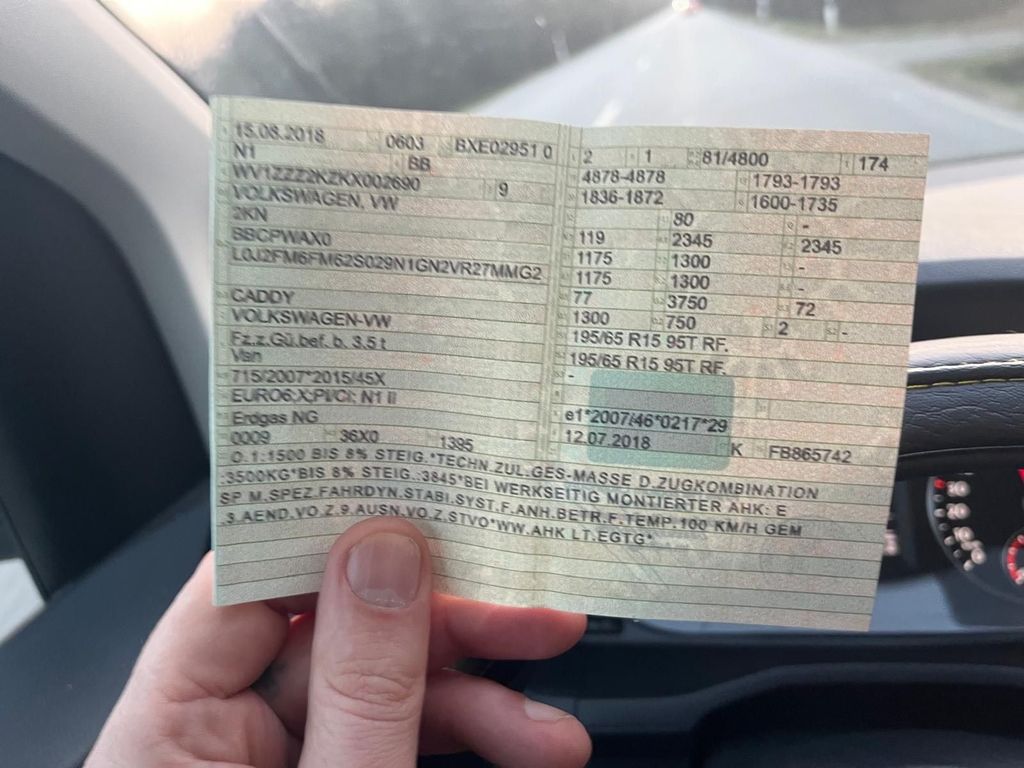 15.08.2018 0603 BXE02951 0
N1 BB
WV1ZZZ2KZKX002690 9
VOLKSWAGEN, VW
2KN
BBCPWAX0
L0J2FM6FM62S029N1GN2VR27MMG2
CADDY
VOLKSWAGEN-VW
Fz.z.Gü.bef.b. 3,5 t
Van
715/2007*2015/45X
EURO6;X;PI/CI; N1 II
Erdgas NG
0009 36X0 1395
2 1 81/4800 174
4878-4878 1793-1793
1836-1872 1600-1735
80 -
119 2345 2345
1175 1300 -
1175 1300 -
77 3750 72
1300 750 2 -
195/65 R15 95T RF.
195/65 R15 95T RF.
-
e1*2007/46*0217*29
12.07.2018 K FB865742
O.1:1500 BIS 8% STEIG.*TECHN.ZUL.GES-MASSE D.ZUGKOMBINATION
:3500KG*BIS 8% STEIG.:3845*BEI WERKSEITIG MONTIERTER AHK: E
SP M.SPEZ.FAHRDYN.STABI.SYST.F.ANH.BETR.F.TEMP.100 KM/H GEM
.3.AEND.VO.Z.9.AUSN.VO.Z.STVO*WW.AHK LT.EGTG*